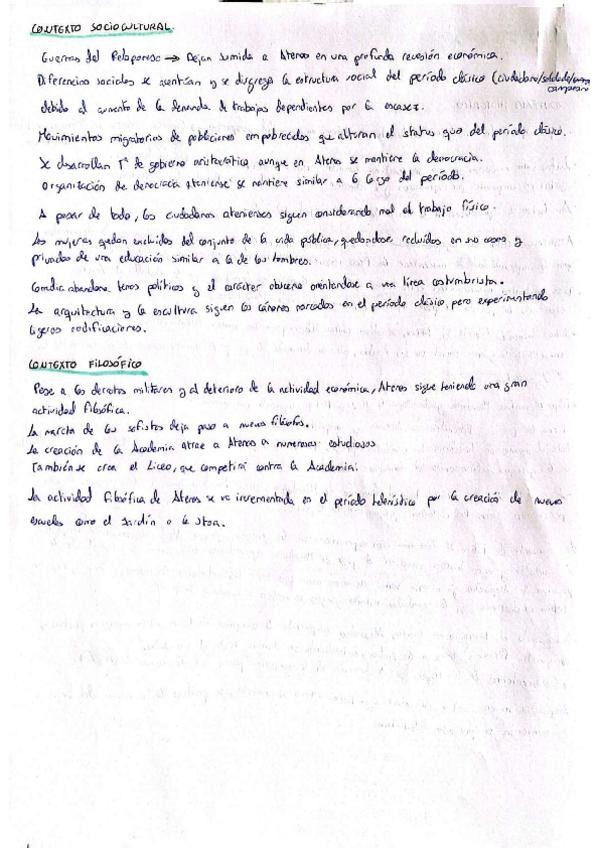 CONTEXTO SOCIOCULTURAL.
Guerras del Peloponeso → Dejan sumida a Atenas en una profunda recesión económica.
Diferencias sociales se acentúan y se disgrega la estructura social del período clásico (ciudadano/soldado/
campesino
debido al aumento de la demanda de trabajos dependientes por la escasez.
Movimientos migratorios de poblaciones empobrecidas que alteran el status quo del período clásico.
Se desarrollan Tª de gobierno aristocrático aunque en Atenas se mantiene la democracia.
Organización de democracia ateniense se mantiene similar a lo largo del período.
A pesar de todo, los ciudadanos atenienses siguen considerando mal el trabajo físico.
Las mujeres quedan excluidas del conjunto de la vida pública, quedándose recluidas en sus casas y
privadas de una educación similar a la de los hombres.
Comedia abandona temas políticos y el carácter obsceno orientándose a una línea costumbrista.
La arquitectura y la escultura siguen los cánones marcados en el período clásico, pero experimentando
ligeras modificaciones.
CONTEXTO FILOSÓFICO
Pese a las derrotas militares y al deterioro de la actividad económica, Atenas sigue teniendo una gran
actividad filosófica.
La marcha de los sofistas deja paso a nuevos filósofos.
La creación de la Academia atrae a Atenas a numerosos estudiosos
También se crea el Liceo, que competirá contra la Academia.
La actividad filosófica de Atenas se va incrementada en el período helenístico por la creación de nuevas
escuelas como el Jardín o la Stoa.